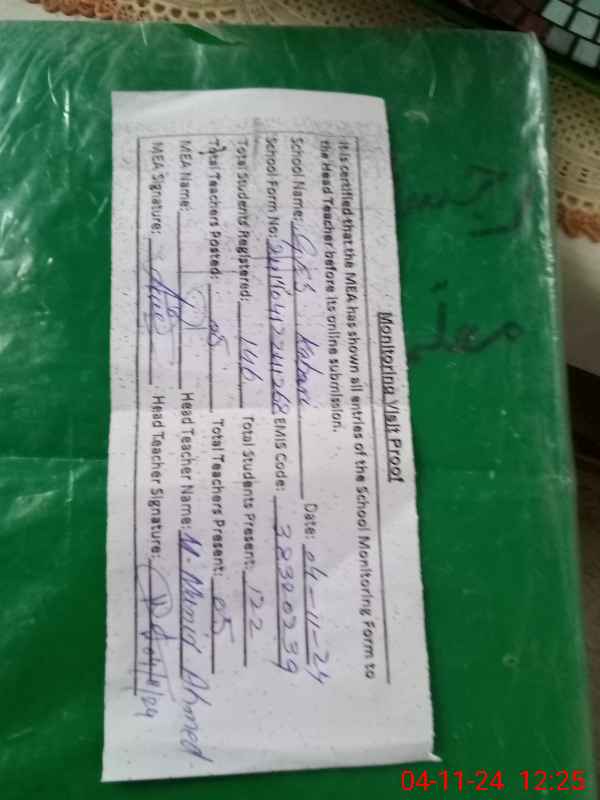 Monitoring Visit Proof
It is certified that the MEA has shown all entries of the School Monitoring Form to
the Head Teacher before its online submission.
School Name: Date: 04-11-24
School Form No: EMIS Code: 38320239
Total Students Registered: 146 Total Students Present: 122
Total Teachers Posted: 05 Total Teachers Present: 05
MEA Name: Head Teacher Name: M. Munir Ahmed
MEA Signature: Head Teacher Signature: 04/11/24
04-11-24 12:25